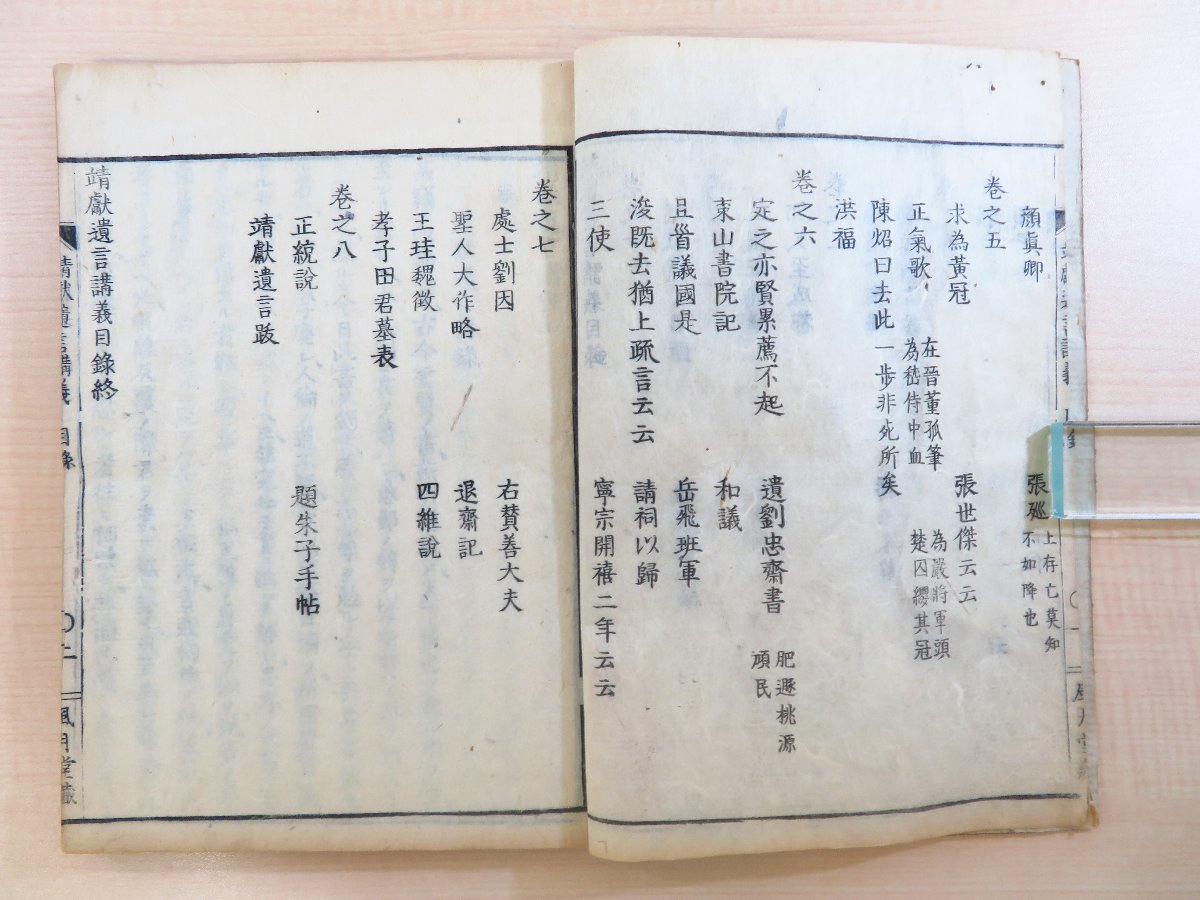 顔眞卿 張廵 上存亡莫知
不如降也
卷之五
求為黃冠 張世傑云云
正氣歌 在晉董狐筆
為嵇侍中血 為嚴將軍頭
楚囚纓其冠
陳炤曰去此一步非死所矣
洪福
卷之六
定之亦賢累薦不起 遺劉忠齋書 肥遯桃源
頑民
東山書院記 和議
且咨議國是 岳飛班軍
浚既去猶上疏言云云 請祠以歸
三使 寧宗開禧二年云云
卷之七
處士劉因 右賛善大夫
聖人大作略 退齋記
王珪魏徵 四維說
孝子田君墓表
卷之八
正統說 題朱子手帖
靖獻遺言跋
靖獻遺言講義目錄終
靖献遺言講義 目錄 〇二 風月堂藏